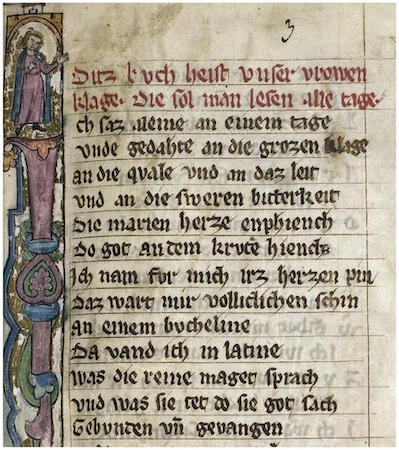 3
Ditz buch heist unser vrowen
klage. Die sol man lesen alle tage.
Ich saz aleine an einem tage
vnde gedahte an die grozen klage
an die quale vnd an daz leit
vnd an die sweren bitterkeit
Die marien herze enphiench
Do got an dem krvce hiench
Ich nam for mich irz herzen pin
Daz wart mir vollichen schin
an einem bucheline
Da vand ich in latine
was die reine maget sprach
vnd was sie tet do sie got sach
Gebunden vn̄ gevangen